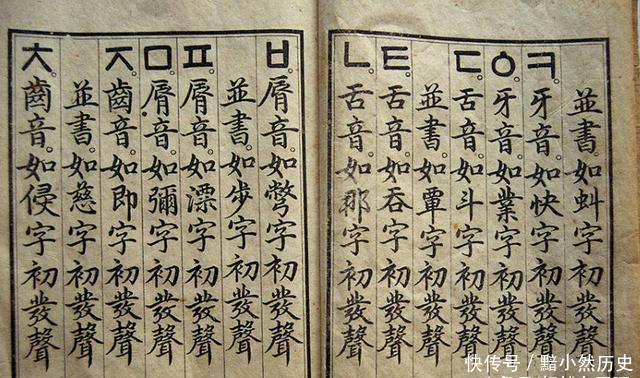 並書。如虯字初發聲
ㅋ。牙音。如快字初發聲
ㆁ。牙音。如業字初發聲
ㄷ。舌音。如斗字初發聲
並書。如覃字初發聲
ㅌ。舌音。如呑字初發聲
ㄴ。舌音。如那字初發聲
ㅂ。脣音。如彆字初發聲
並書。如步字初發聲
ㅍ。脣音。如漂字初發聲
ㅁ。脣音。如彌字初發聲
ㅈ。齒音。如即字初發聲
並書。如慈字初發聲
ㅊ。齒音。如侵字初發聲
快传号 / 黯小然历史